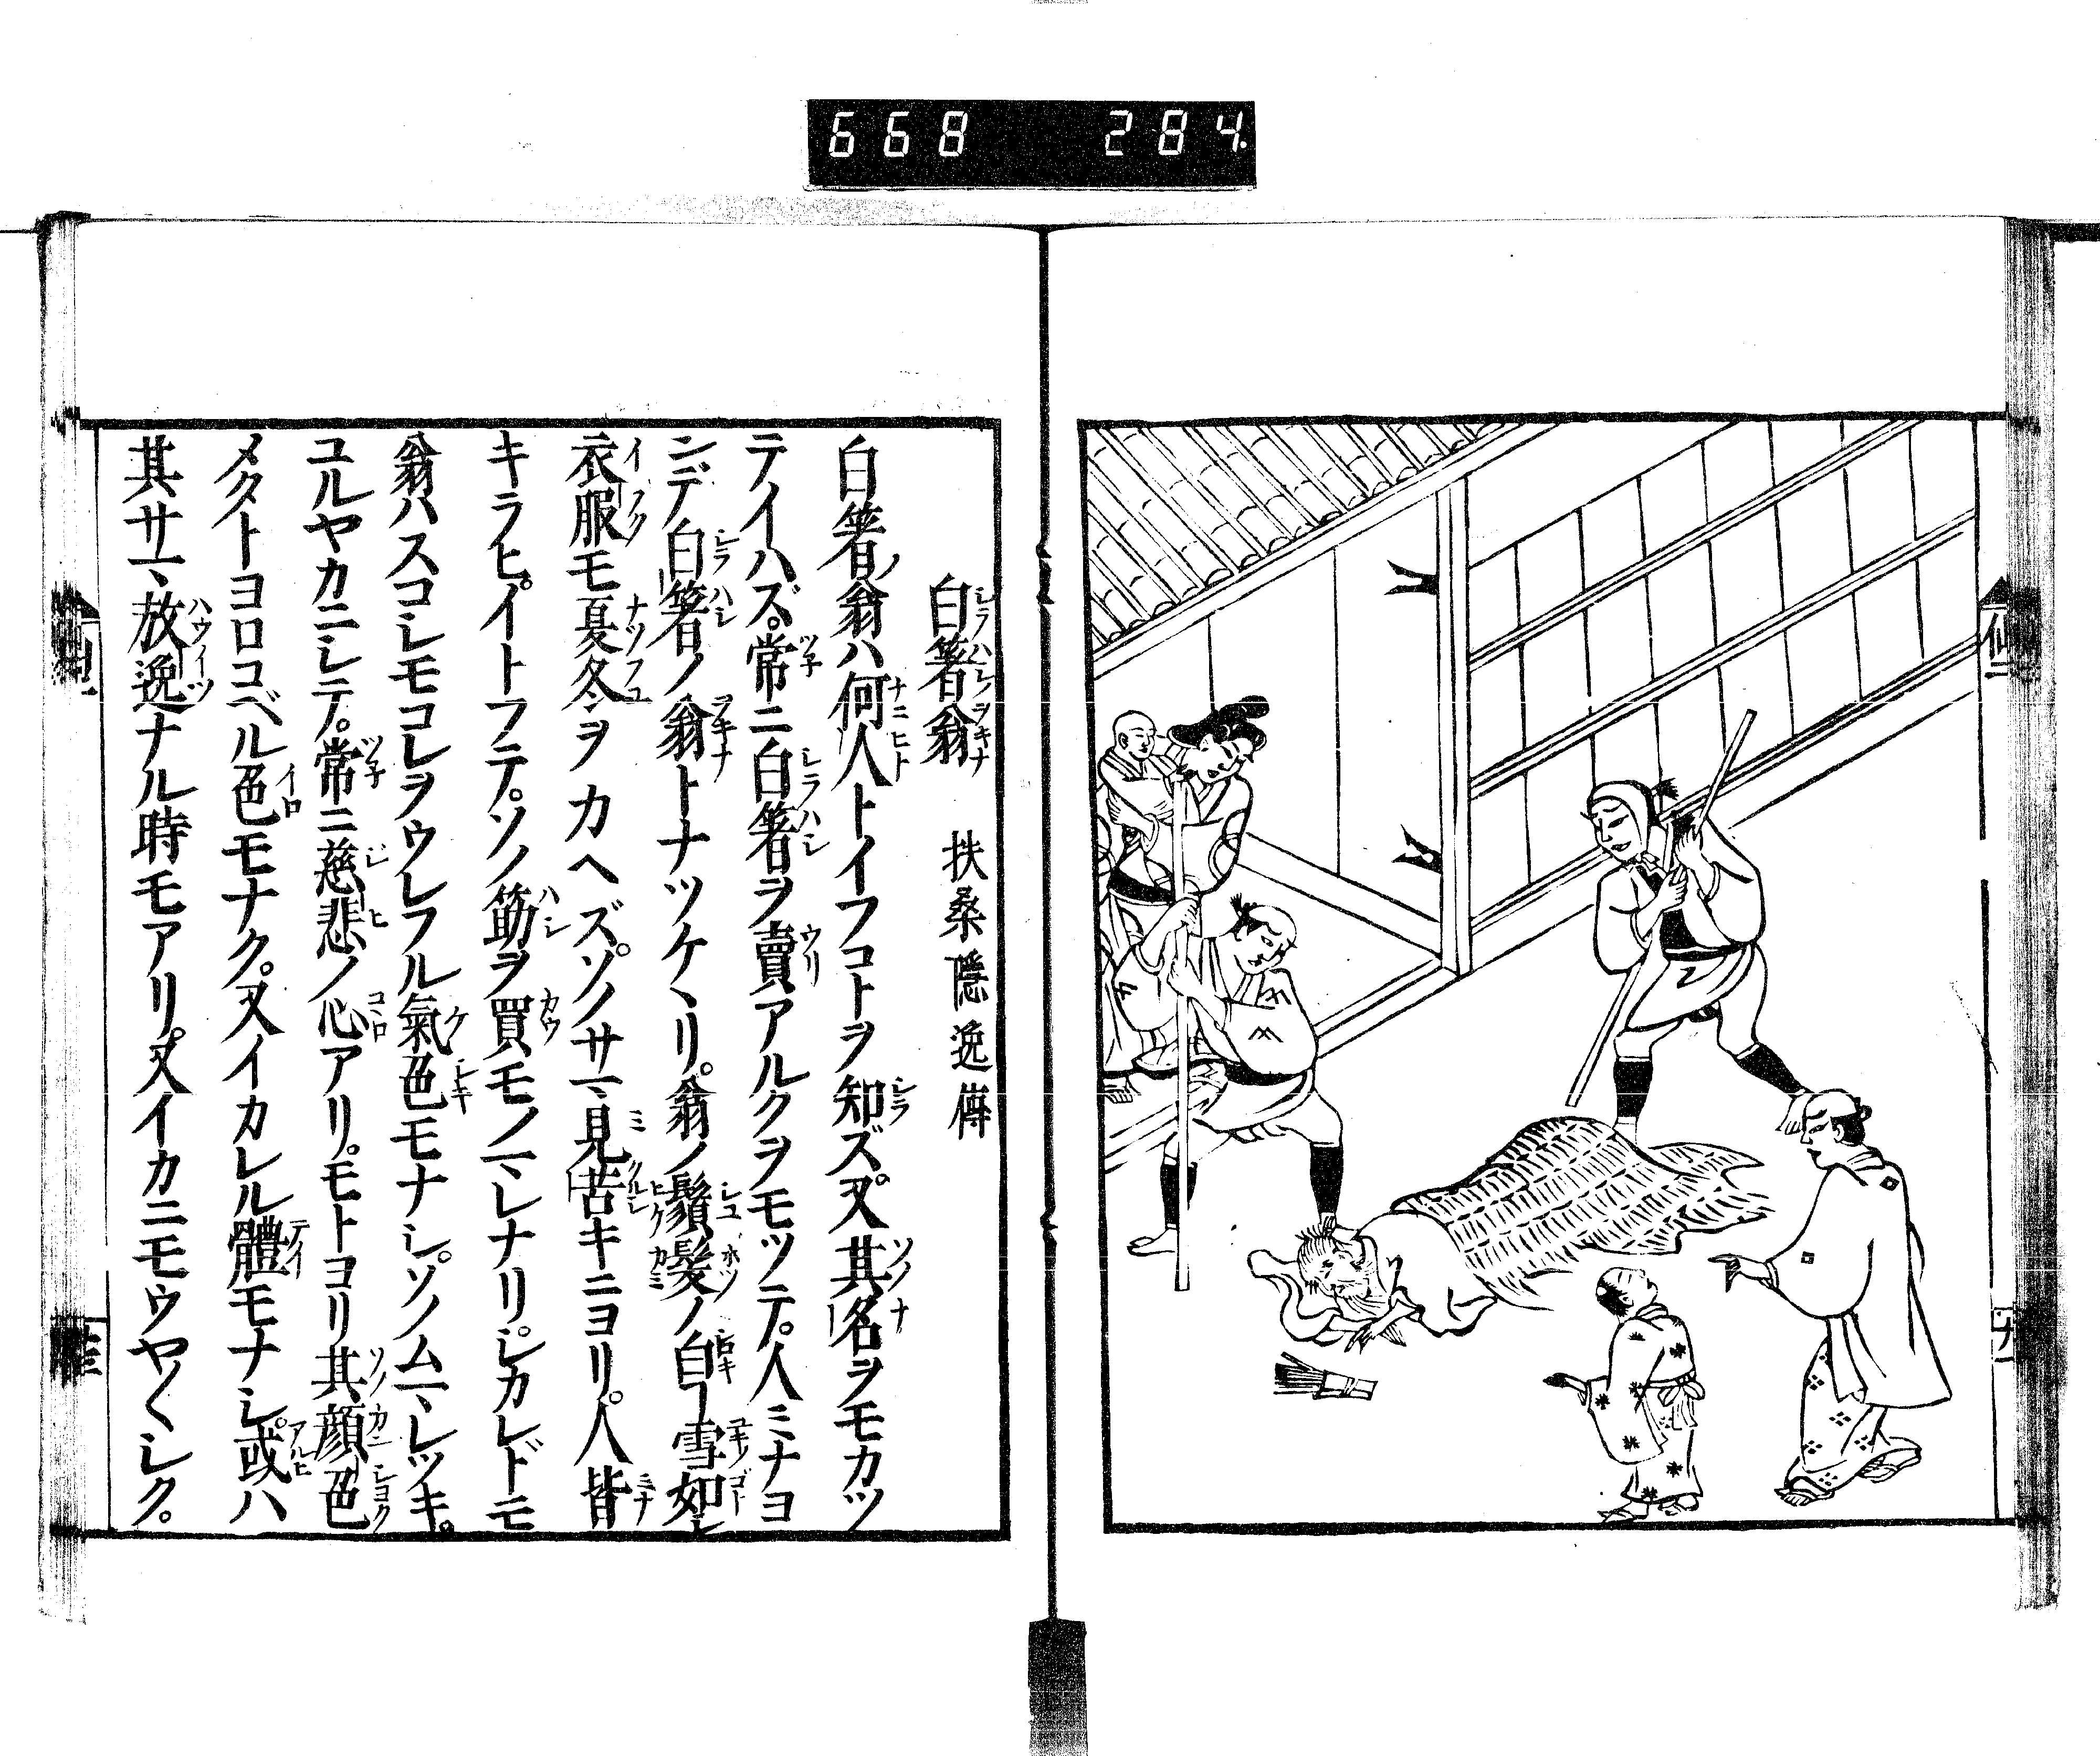 668 284.
白箸翁 扶桑隱逸傳
白箸ノ翁ハ何人トイフコトヲ知ズ。又其名ヲモカツ
テイハズ。常ニ白箸ヲ賣アルクヲモツテ。人ミナヨ
ンデ白箸ノ翁トナツケヽリ。翁ノ鬚髮ノ白ー雪如シ
衣服モ夏冬ヲカヘズ。ソノサマヽ見苦キニヨリ。人皆
キラヒ。イトフテ。ソノ筯ヲ買モノマレナリ。シカレドモ
翁ハスコシモコレヲウレフル氣色モナシ。ソノムマレツキ。
ユルヤカニシテ。常ニ慈悲ノ心アリ。モトヨリ其顔色
メクトヨロコベル色モナク。又イカレル體モナシ。或ハ
其サマヽ放逸ナル時モアリ。又イカニモウヤ〱シク。